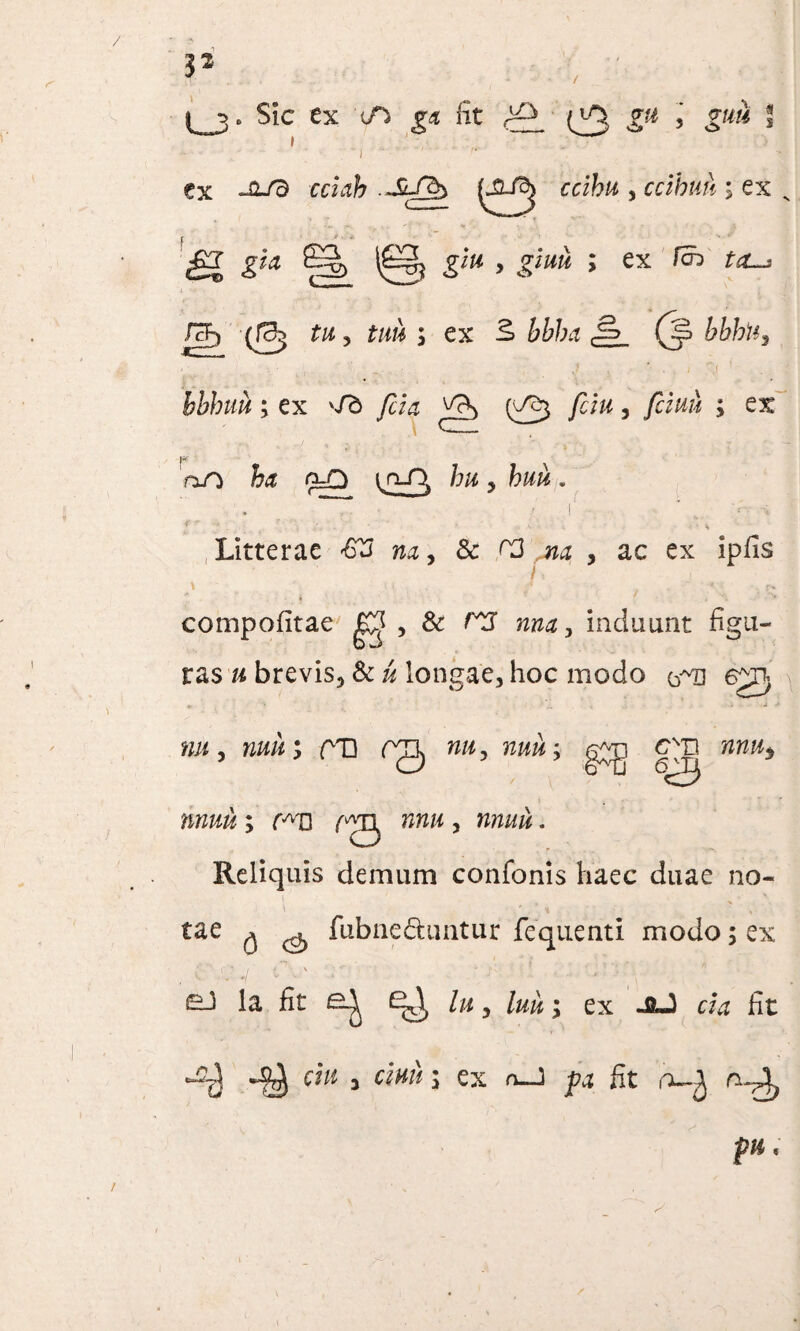 32
Sic ex ഗ ga fit ഗു ഗൂ gu , guù ;
ex ഛ cciah ഛു ഛൂ ccihu , ccihuù ; ex
ജ gia ജു ജൂ giu , giuù ; ex ത ta
തു തൂ tu , tuù ; ex ഭ bbha ഭു ഭൂ bbhu,
bbhuù ; ex ശ ſcia ശു ശൂ ſciu , ſciuù ; ex
ഹ ha ഹു ഹൂ hu , huù .
Litterae ണ na , & ന na , ac ex ipſis
compoſitae ണ്ണ , & ന്ന nna , induunt figu-
ras u brevis, & ù longae, hoc modo ണു ണൂ
nu , nuù ; നു നൂ nu , nuù ; ണ്ണു ണ്ണൂ nnu,
nnuù ; ന്നു ന്നൂ nnu , nnuù .
Reliquis demum conſonis haec duae no-
tae ു ൂ ſubnectuntur ſequenti modo ; ex
ല la fit ലു ലൂ lu , luù ; ex ച cia fit
ചു ചൂ ciu , ciuù ; ex പ pa fit പു പൂ
pu .